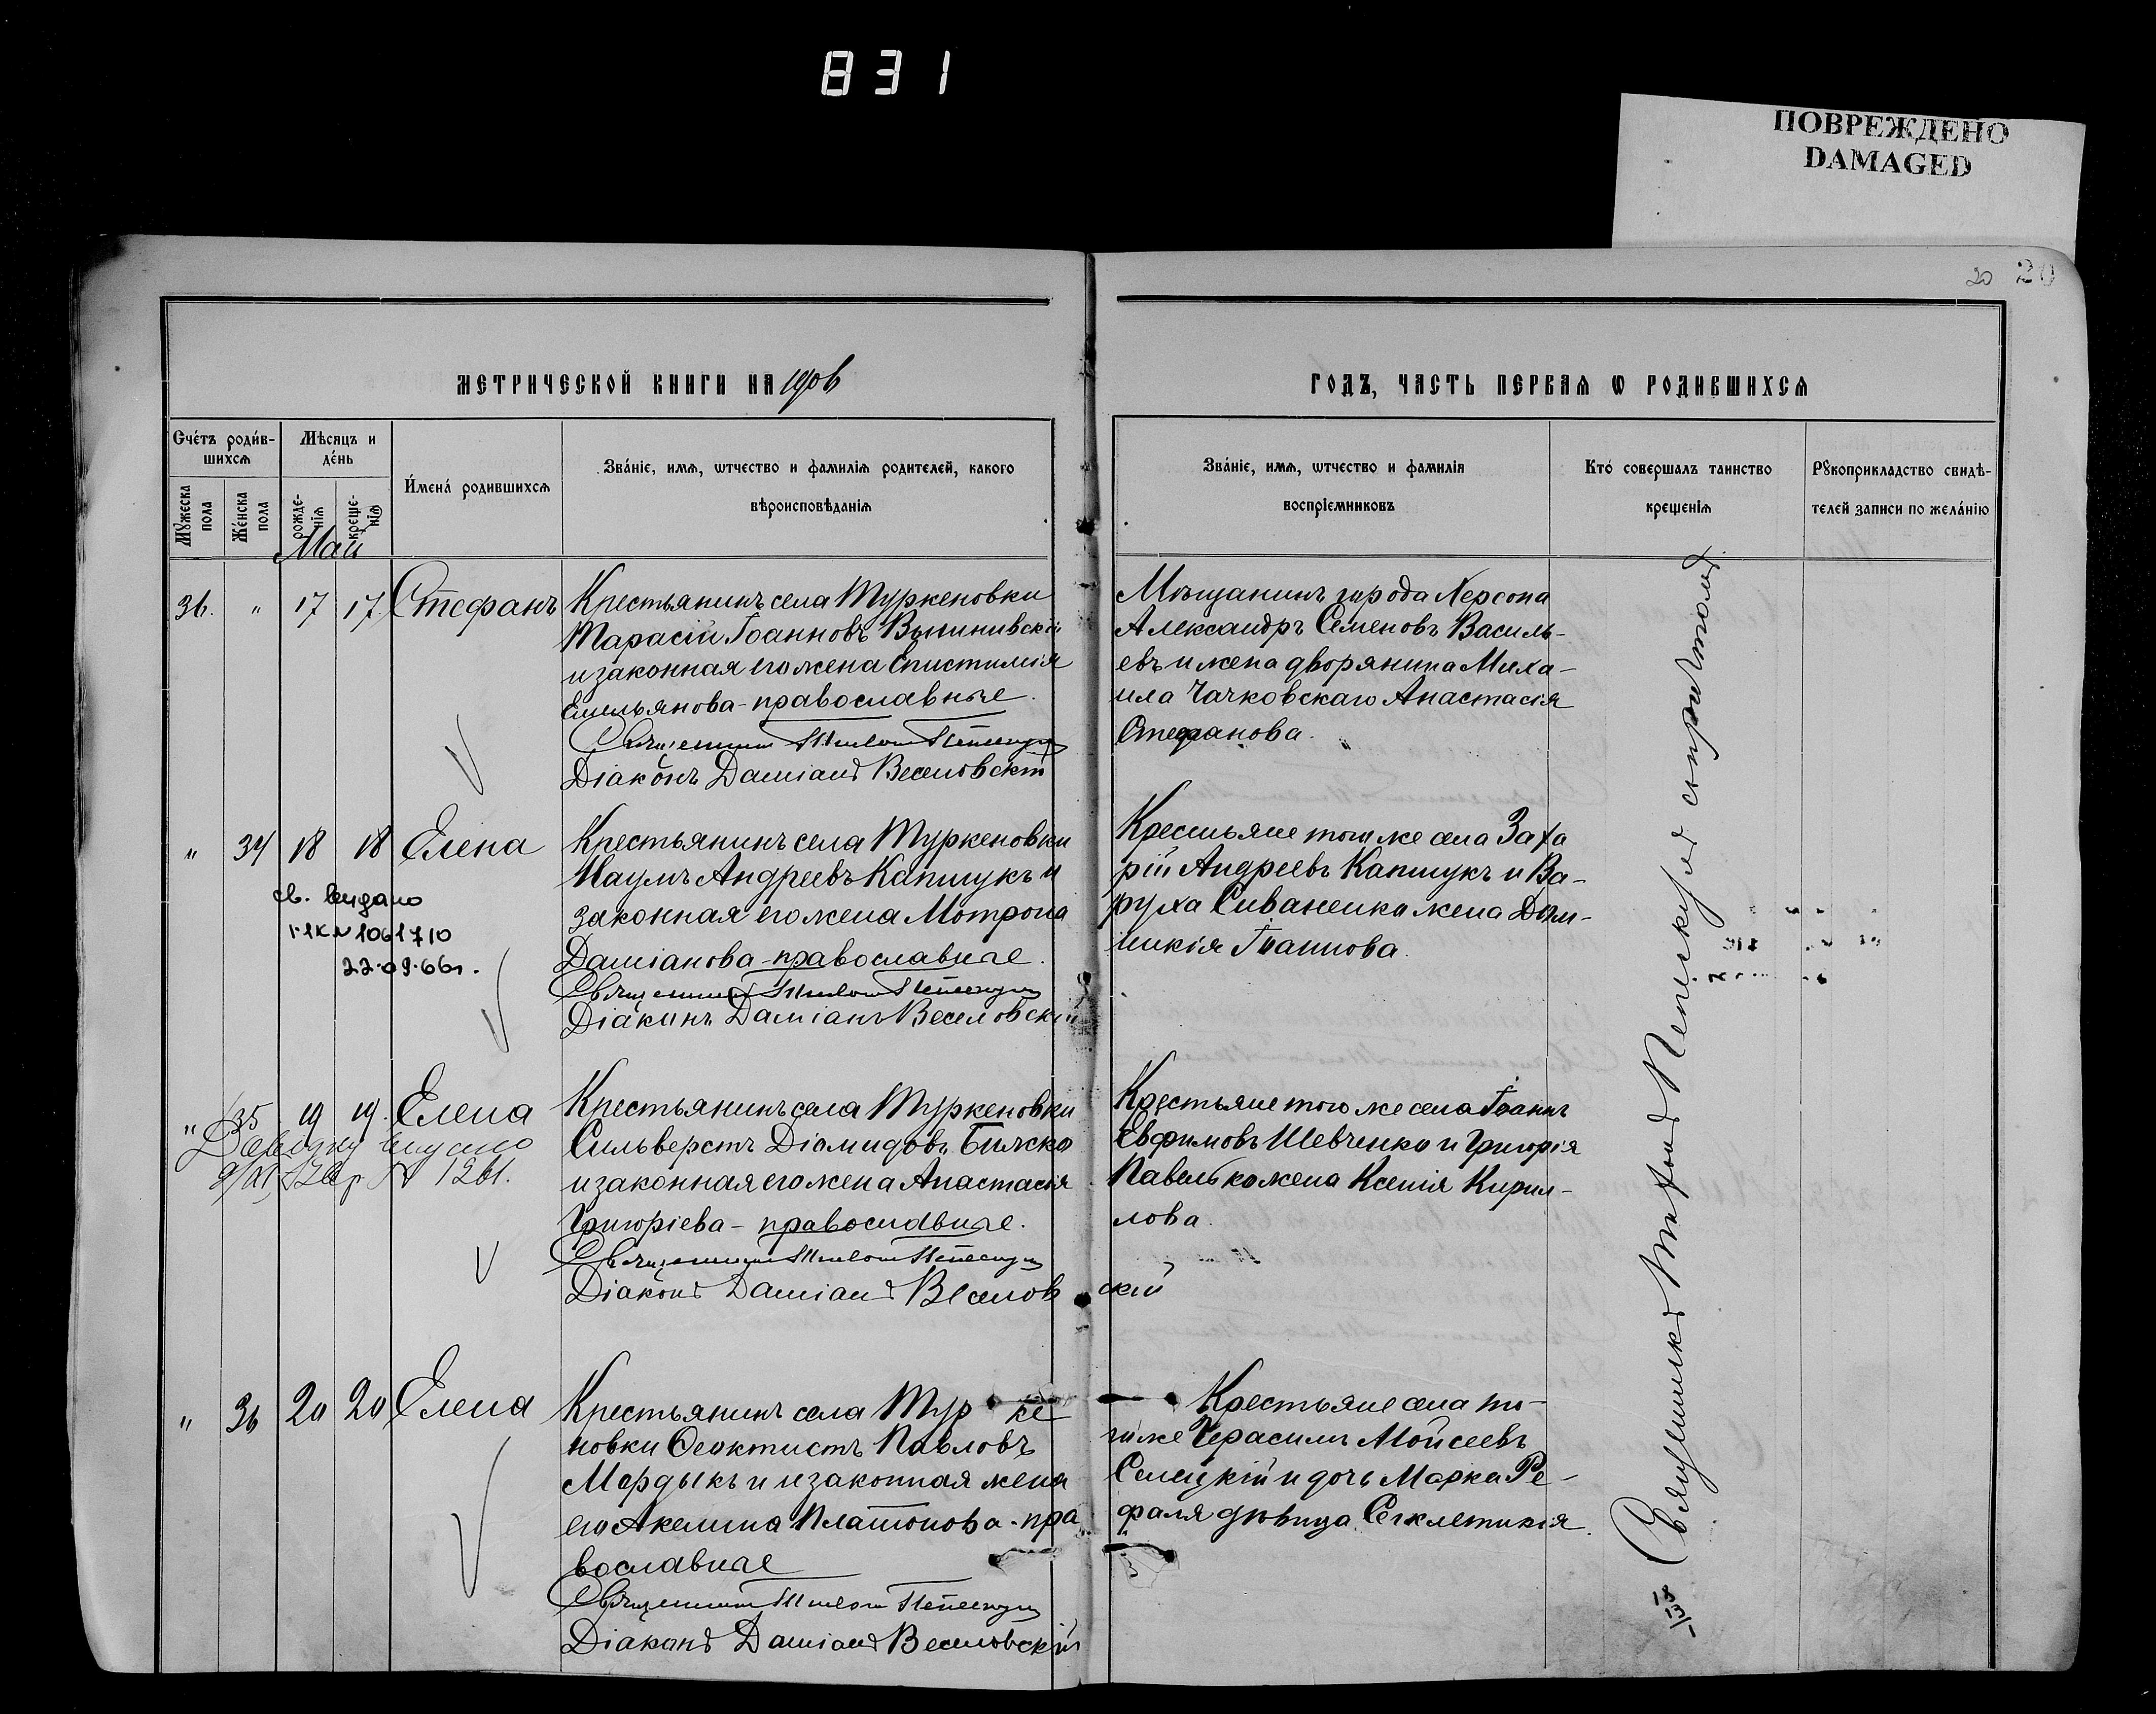 831
ПОВРЕЖДЕНО
DAMAGED
20 20
МЕТРИЧЕСКОЙ КНИГИ НА 1906
ГОДЪ, ЧАСТЬ ПЕРВАЯ Ѡ РОДИВШИХСЯ
Счетъ родив-
шихся
Мужеска пола
Женска пола
Мѣсяцъ и
день
рожде-
нія
креще-
нія
Имена родившихся
Званіе, имя, ѡтчество и фамилія родителей, какого
вѣроисповѣданія
Званіе, имя, ѡтчество и фамилія
воспріемниковъ
Кто совершалъ таинство
крещенія
Рукоприкладство свидѣ-
телей записи по желанію
Май
36. " 17 17 Стефанъ
Крестьянинъ села Туркеновки
Тарасій Іоанновъ
и законная его жена Епистимія
Емельянова - православные.
Священникъ
Діаконъ Даміанъ Веселовскій
Мѣщанинъ города Херсона
Александръ Семеновъ Василь-
евъ и жена дворянина Миха-
ила Чачковскаго Анастасія
Стефанова.
" 34 18 18 Елена
св. видано
1061710
22.09.66г.
Крестьянинъ села Туркеновки
Наумъ Андреевъ Капшукъ и
законная его жена Мотрона
Даміанова - православные.
Священникъ
Діаконъ Даміанъ Веселовскій
Крестьяне того же села Заха
рій Андреевъ Капшукъ и Ва-
руха Сиваненка жена Дом-
Іоаннова.
" 35 19 19. Елена
Довідку видано
1261.
Крестьянинъ села Туркеновки
Сильверстъ Діомидовъ
и законная его жена Анастасія
Григоріева - православные.
Священникъ
Діаконъ Даміанъ Веселов скій
Крестьяне того же села Іоаннъ
Евфимовъ Шевченко и Григорія
Павелько жена Ксенія Кирил-
лова.
" 36 20 20 Елена
Крестьянинъ села Тур ке
новки Феоктистъ Павловъ
Мардыкъ и законная жена
его Акелина Платонова - пра
вославные
Священникъ
Діаконъ Даміанъ Веселовскій
Крестьяне села то-
го же Герасимъ Моисеевъ
Селецкій и дочь Марка Ре-
фаля дѣвица Секлетикія.
Священникъ
13